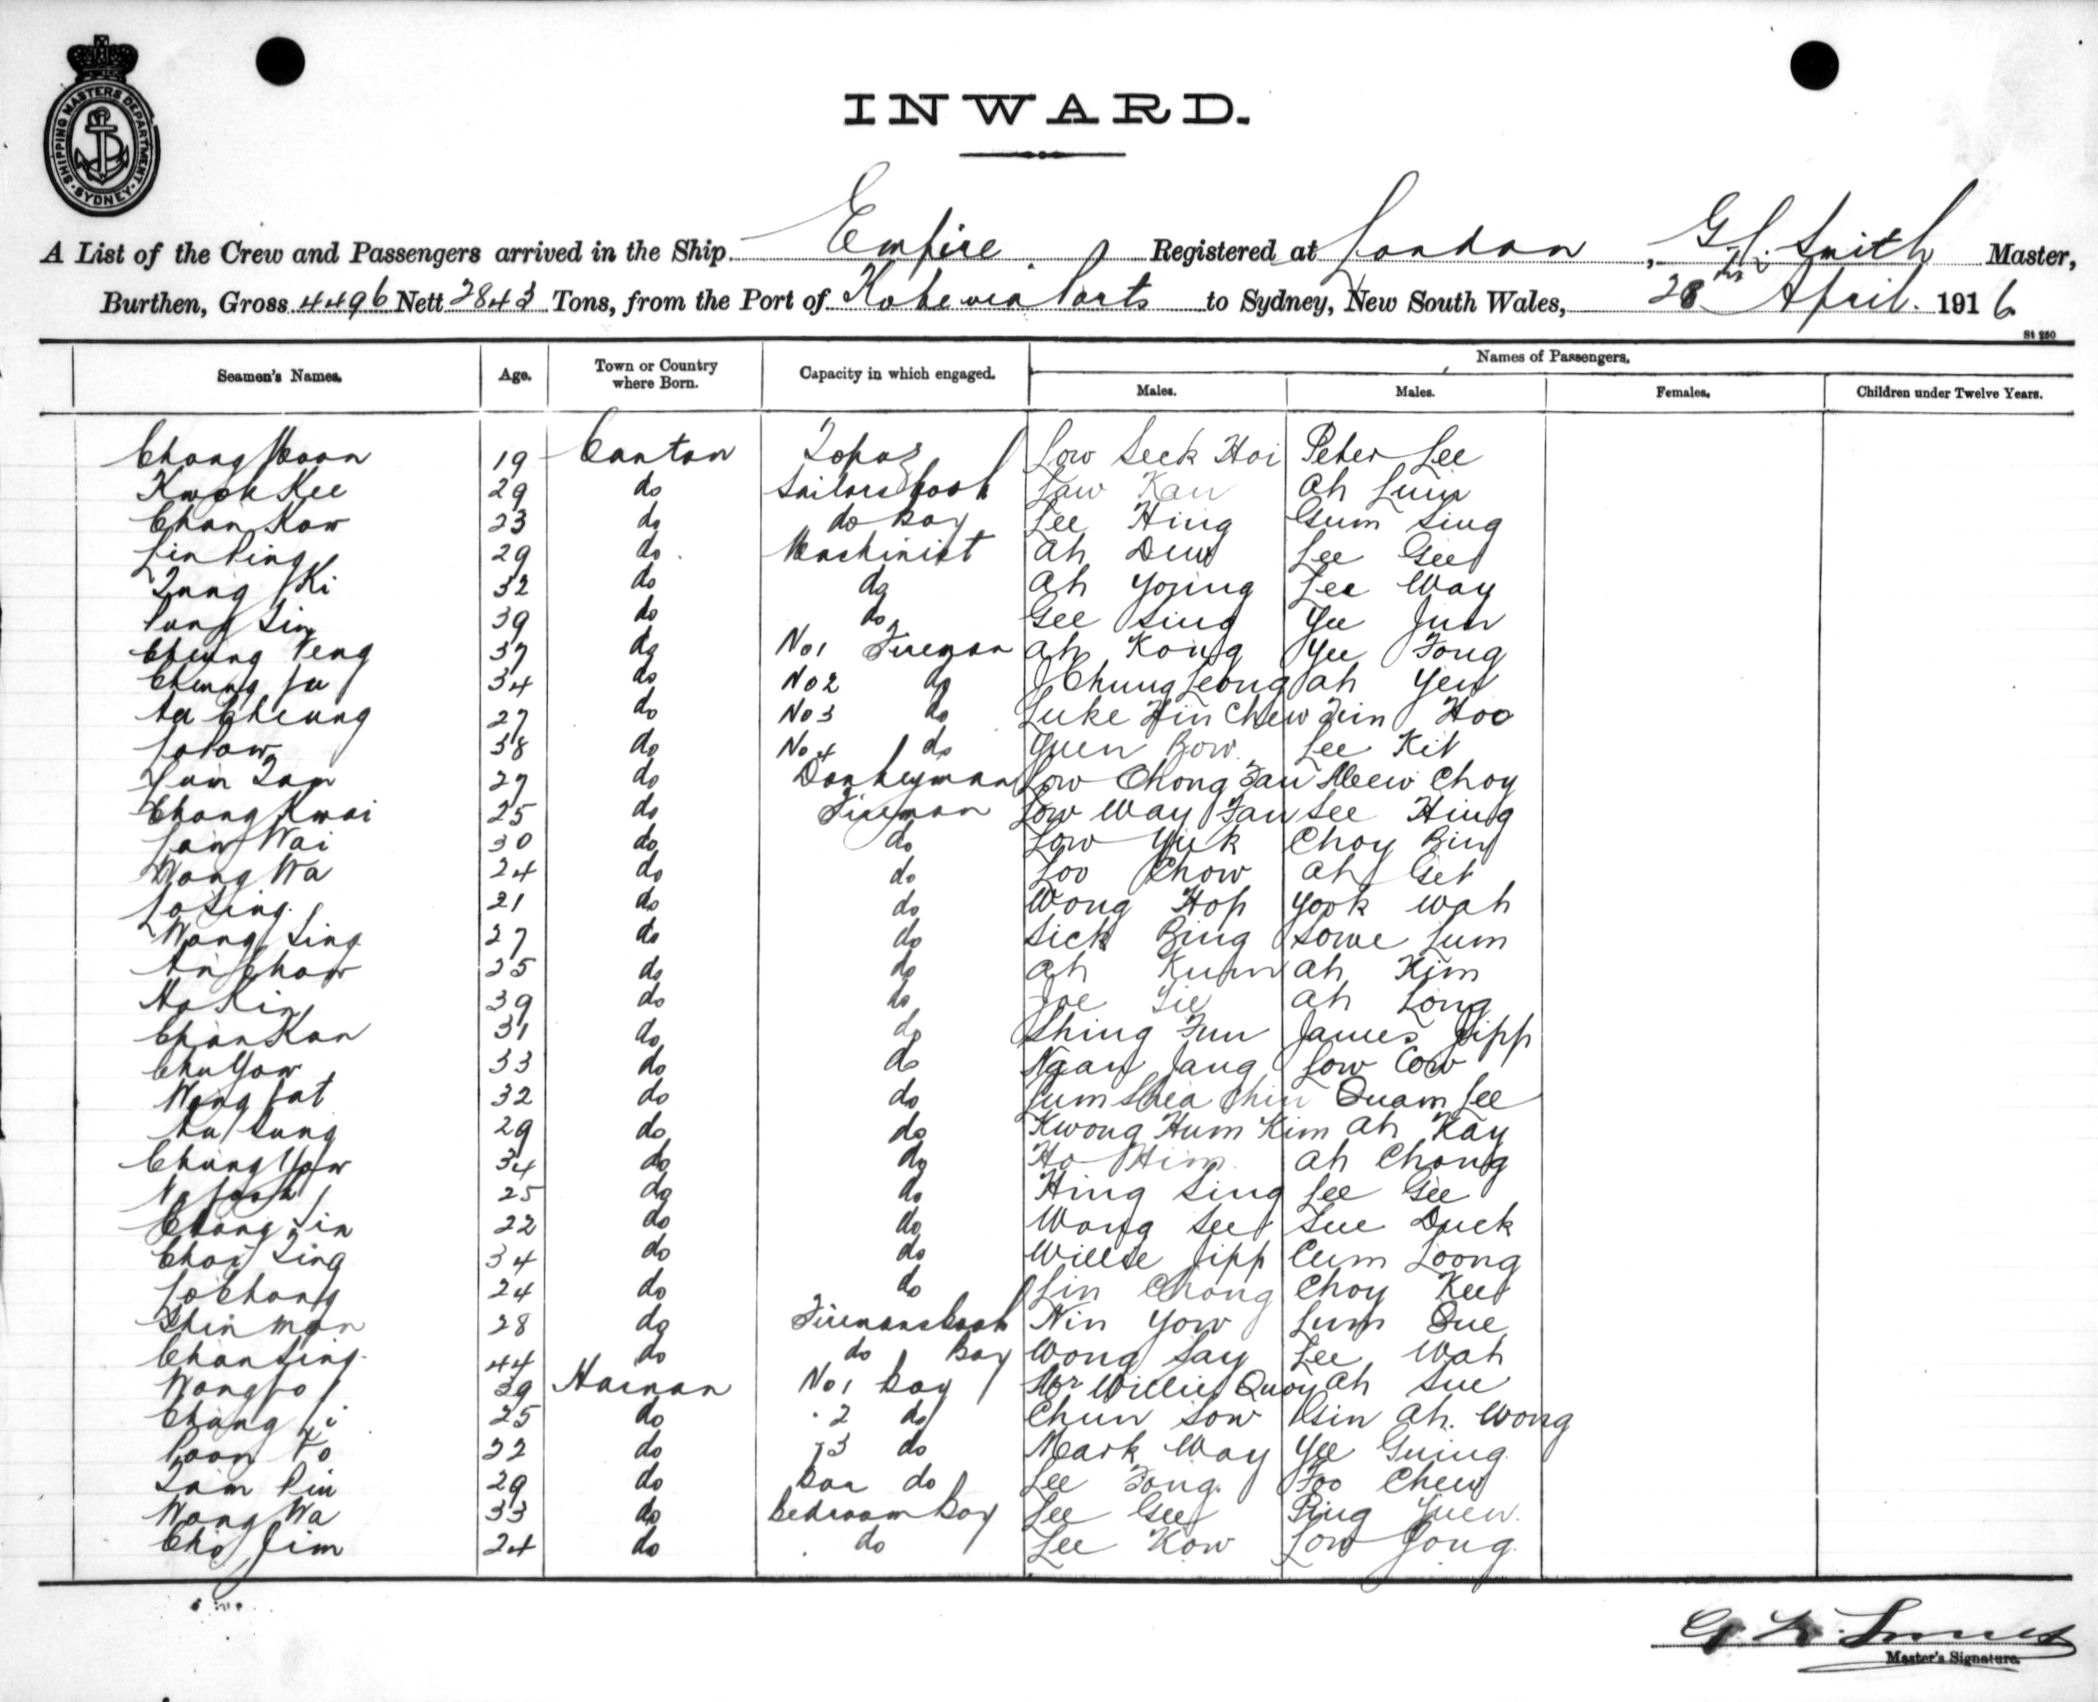 SHIPPING MASTERS DEPARTMENT
SYDNEY
INWARD.
A List of the Crew and Passengers arrived in the Ship Empire Registered at London, G. L. Smith Master,
Burthen, Gross 4496 Nett 2843 Tons, from the Port of Kobe via Ports to Sydney, New South Wales, 28th April 1916
St 250
Names of Passengers.
Seamen's Names. Age. Town or Country where Born. Capacity in which engaged. Males. Males. Females. Children under Twelve Years.
19 Canton Topaz Low Seck Hoi Peter Lee
Kwok Kee 29 do Sailors Cook Law Kan Ah Lum
Chan Kow 23 do do Boy Lee Hing Gum Sing
Lin Ping 29 do Machinist Ah Dew Lee Gee
Tung Ki 32 do do Ah Young Lee Way
Pang Sin 39 do do Gee Sing Yee Jun
Cheung Peng 37 do No 1 Fireman Ah Kong Yee Fong
Cheung Fu 34 do No 2 do J Chung Leong Ah Yen
Au Cheung 27 do No 3 do Luke Hin Chew Hoo
Lo Pow 38 do No 4 do Yuen Bow Lee Kit
Yun Tam 27 do Donkeyman Low Chong Choy
Chong Kwai 25 do Fireman Low Way Fan See Hing
Law Wai 30 do do Low Yuk Choy Bing
Wong Wa 24 do do Loo Chow Ah Get
Lo Sing 21 do do Wong Hop Yook Wah
Wong Sing 27 do do Sick Bing Sowe Lum
Au Chow 25 do do Ah Kum Ah Kim
Ho Kin 39 do do Joe Ah Long
Chan Kan 31 do do Shing Fun James Jipp
Chu Yow 33 do do Ngan Jang Low Cow
Wong Fat 32 do do Lum Shea Chin Quam Lee
Au Sung 29 do do Kwong Hum Kim Ah Kay
Chung Yow 34 do do Ho Him Ah Chong
25 do do Hing Sing Lee Gee
Chong Sin 22 do do Wong See Sue Duck
Choi Sing 34 do do Willie Jipp Cum Loong
Lo Chong 24 do do Lin Chong Choy Kee
Shin Man 28 do Firemans Cook Nin Yow Lum Que
Chan Sing 44 do do Boy Wong Say Lee Wah
Wong Fo 39 Hainan No 1 Boy Mr Willie Quoy Ah Sue
Chang Li 25 do 2 do Chun Sow Ah Wong
Poon Fo 22 do 3 do Mark Way Yee Guing
Tam Pin 29 do Bar do Lee Fong Foo Chew
Wong Wa 33 do Bedroom Boy Lee Gee Ping Yuen
Cho Jim 24 do do Lee Kow Low Jong
Master's Signature.